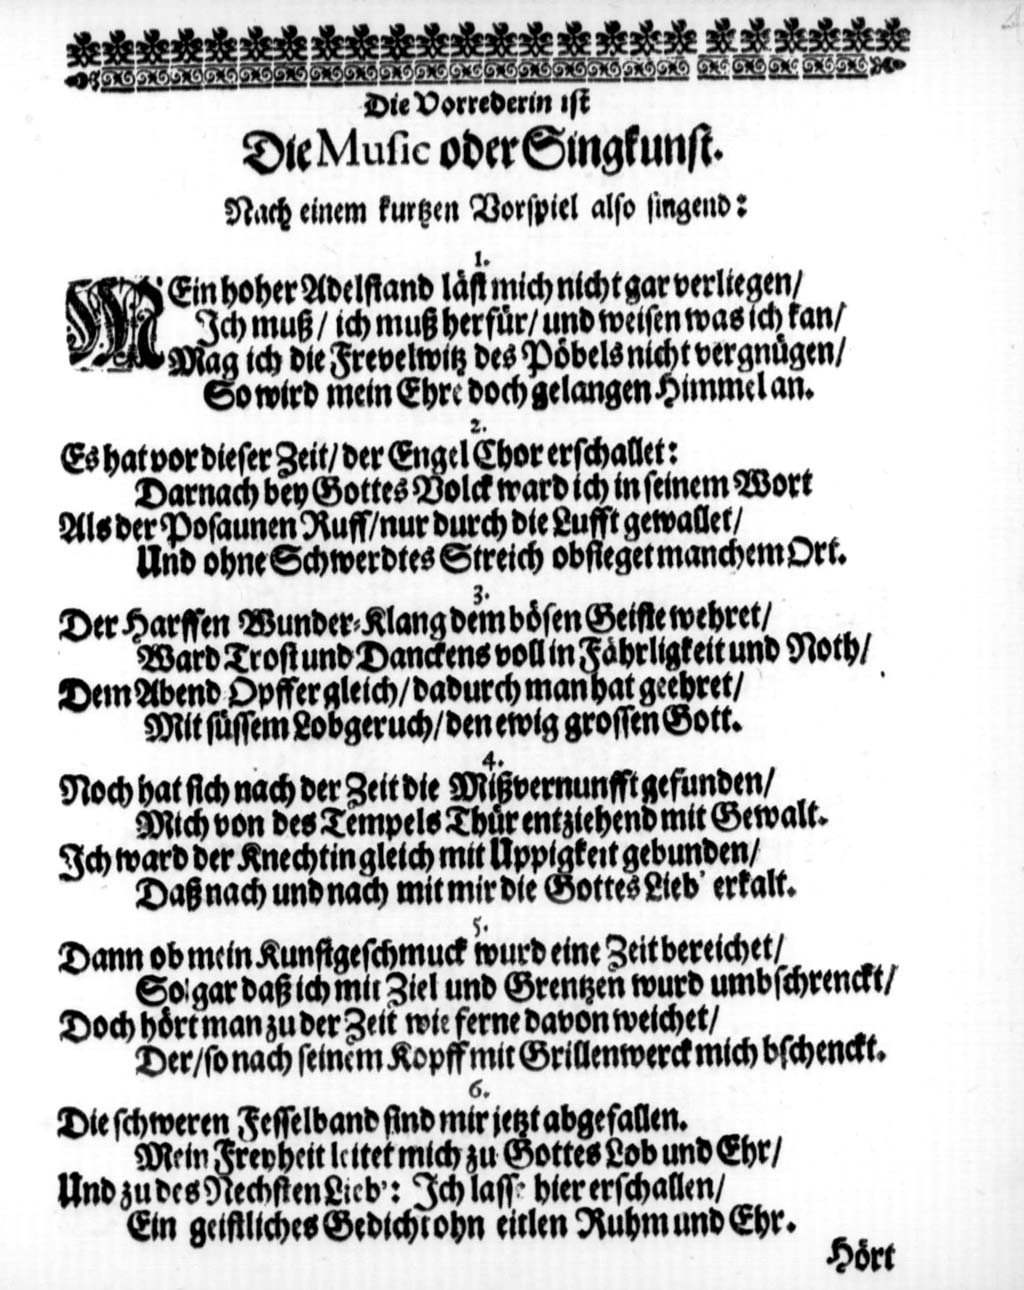 Die Vorrederin ist
Die Music oder Singkunst.
Nach einem kurtzen Vorspiel also singend:
1.
MEin hoher Adelstand läst mich nicht gar verliegen/
Ich muß/ ich muß herfür/ und weisen was ich kan/
Mag ich die Frevelwitz des Pöbels nicht vergnügen/
So wird mein Ehre doch gelangen Himmel an.
2.
Es hat vor dieser Zeit/ der Engel Chor erschallet:
Darnach bey Gottes Volck ward ich in seinem Wort
Als der Posaunen Ruff/ nur durch die Lufft gewallet/
Und ohne Schwerdtes Streich obsieget manchem Ort.
3.
Der Harffen Wunder-Klang dem bösen Geiste wehret/
Ward Trost und Danckens voll in Fährligkeit und Noth/
Dem Abend Opffer gleich/ dadurch man hat geehret/
Mit süssem Lobgeruch/ den ewig grossen Gott.
4.
Noch hat sich nach der Zeit die Mißvernunfft gefunden/
Mich von des Tempels Thür entziehend mit Gewalt.
Ich ward der Knechtin gleich mit Uppigkeit gebunden/
Daß nach und nach mit mir die Gottes Lieb' erkalt.
5.
Dann ob mein Kunstgeschmuck wurd eine Zeit bereichet/
So gar daß ich mit Ziel und Grentzen wurd umbschrenckt/
Doch hört man zu der Zeit wie ferne davon weichet/
Der/ so nach seinem Kopff mit Grillenwerck mich bschenckt.
6.
Die schweren Fesselband sind mir jetzt abgefallen.
Mein Freyheit leitet mich zu Gottes Lob und Ehr/
Und zu des Nechsten Lieb': Ich lasse hier erschallen/
Ein geistliches Gedicht ohn eitlen Ruhm und Ehr.
Hört